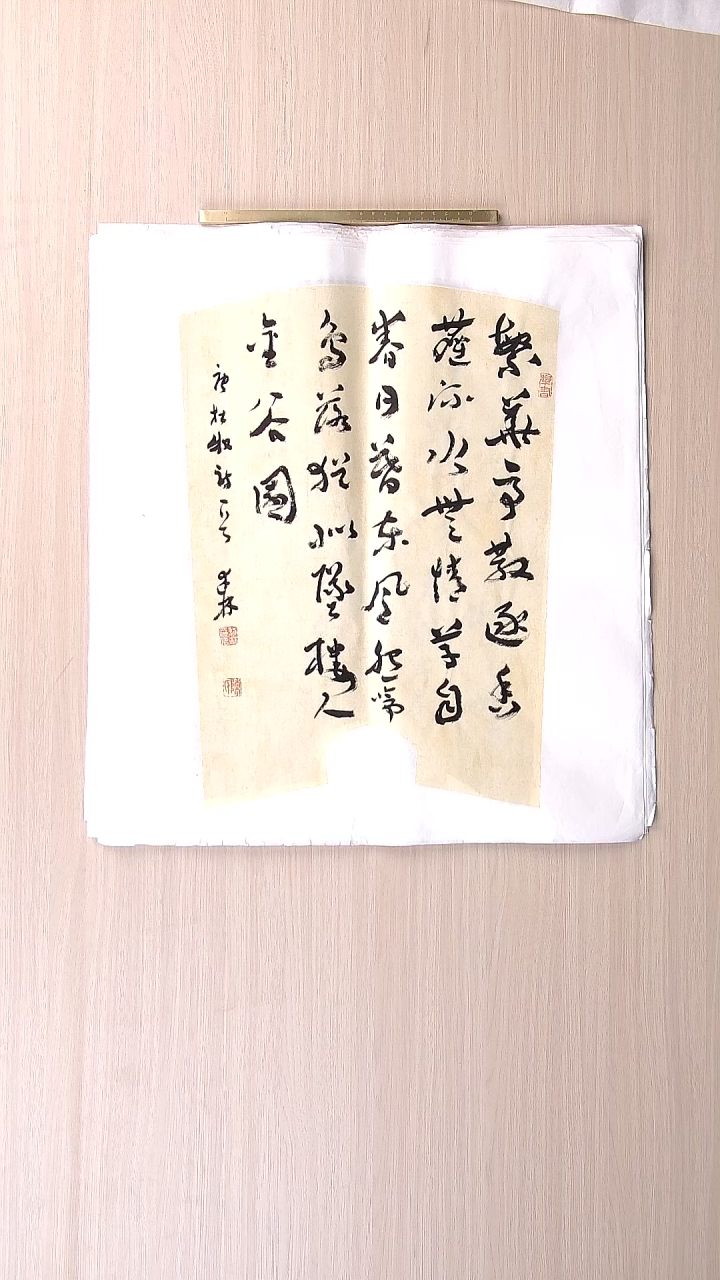 繁華事散逐香
塵流水無情草自
春日暮東風怨啼
鳥落猶似墜樓人
金谷園
唐杜牧詩一首